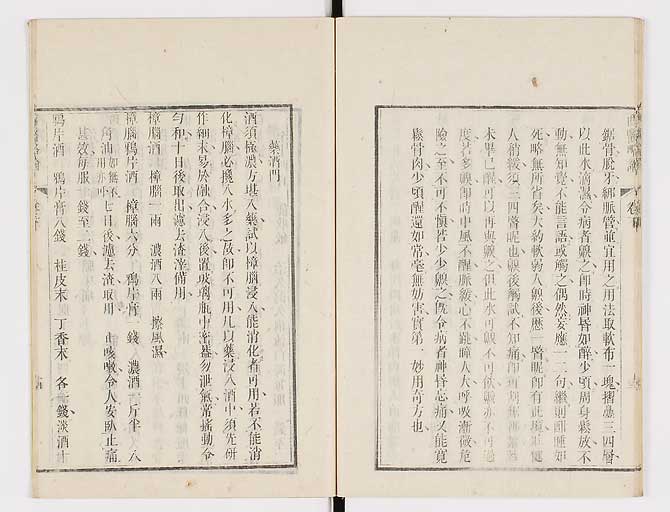 鋸骨脫牙綁脈管並宜用之用法取軟布一塊摺疊三四層
以此水滴濕令病者齅之卽時神昏如醉少頃周身鬆放不
動無知覺不能言語或觸之偶然妄應一二句繼則酣睡如
死略無所省矣大約軟弱人齅後應一瞥眠卽有此境壯健
人稍緩須三四瞥眠也齅後觸試不知痛卽可刀割
未畢已醒可以再與齅之但此水可齅不可飲齅亦不可過
度若多齅卽時中風不醒脈緩心不跳瞳人大呼吸漸微危
險之至不可不愼若少少齅之旣令病者神昏忘痛又能寬
鬆骨肉少頃醒還如常毫無妨害實第一妙用奇方也
藥酒門
酒須極濃方堪入藥試以樟腦浸入能消化者可用若不能消
化樟腦必攙入水多之故卽不可用凡以藥浸入酒中須先研
作細末易於融合浸入後置玻璃瓶中密蓋勿泄氣常搖動令
勻和十日後取出濾去渣滓備用
樟腦酒 樟腦一兩 濃酒八兩 擦風濕
樟腦鴉片酒 樟腦六分 鴉片膏 錢 濃酒二斤半 八
角油 如無不用亦可 七日後濾去渣取用 止咳嗽令人安臥止痛
甚效每服 錢至二錢
鴉片酒 鴉片膏八錢 桂皮末 丁香末 各 錢淡酒十